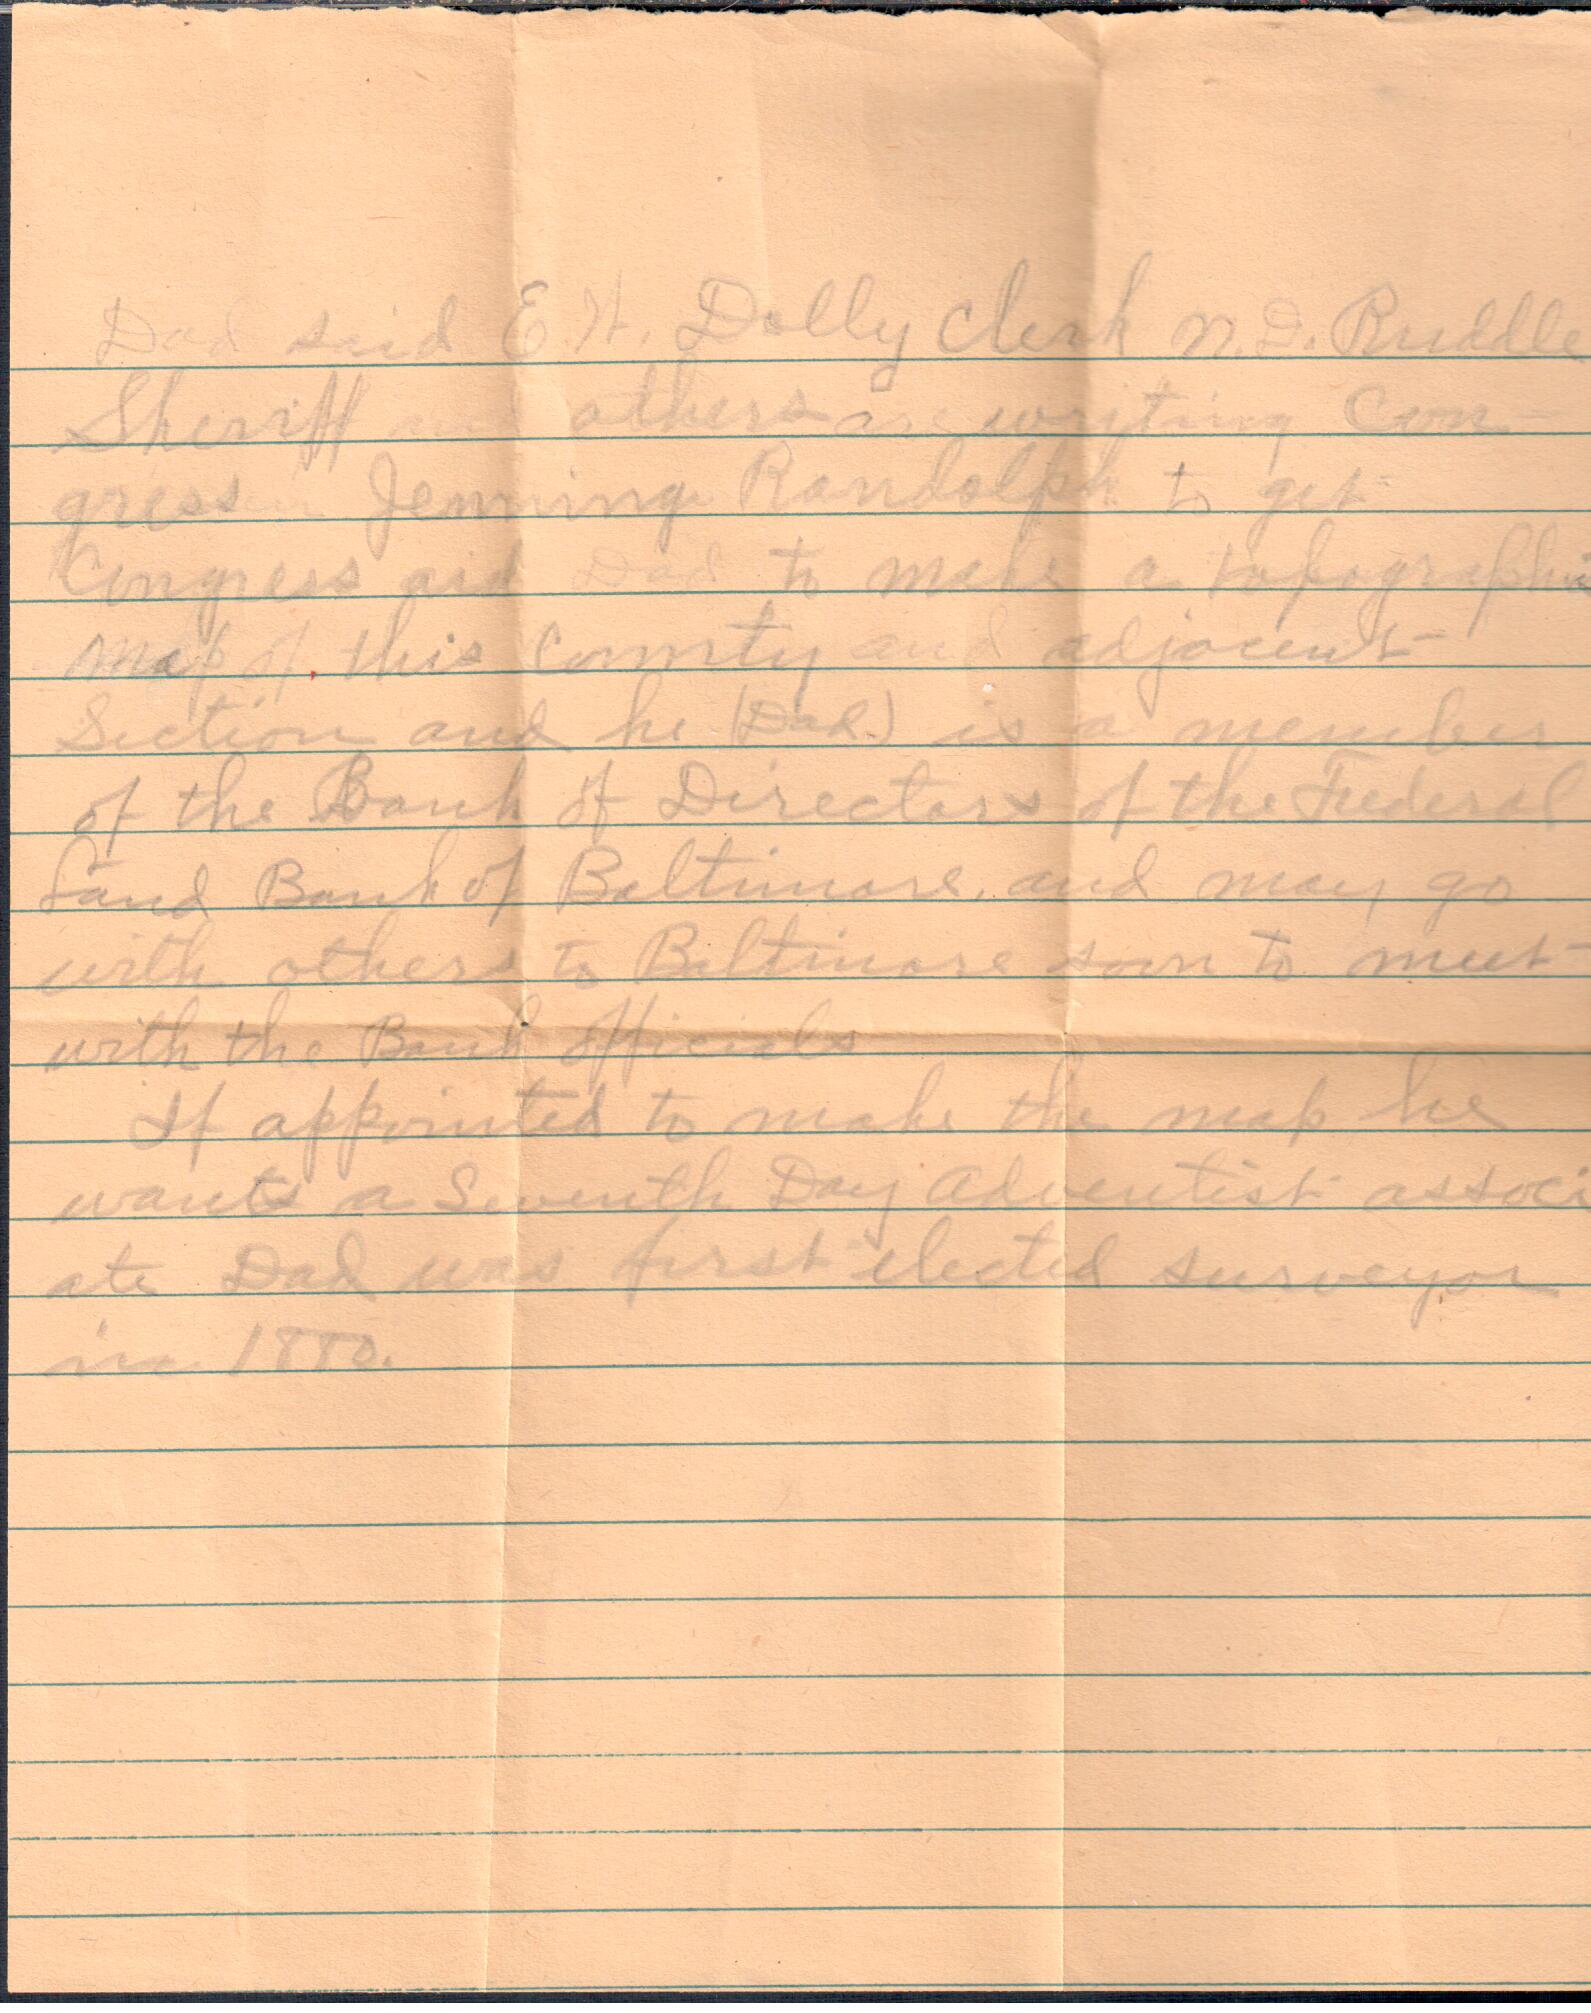 Dad said E. H. Dolly Clerk N. D. Ruddle
Sheriff and others are writing Con-
gress Jenning Randolph to get
Congress aid Dad to make a topographic
map of this County and adjacent
Section and he (Dad) is a member
of the Bank of Directors of the Federal
Land Bank of Baltimore, and may go
with others to Baltimore soon to meet
with the Bank officials
If appointed to make the map he
wants a Seventh Day Adventist associ
ate Dad was first elected surveyor
in 1880.